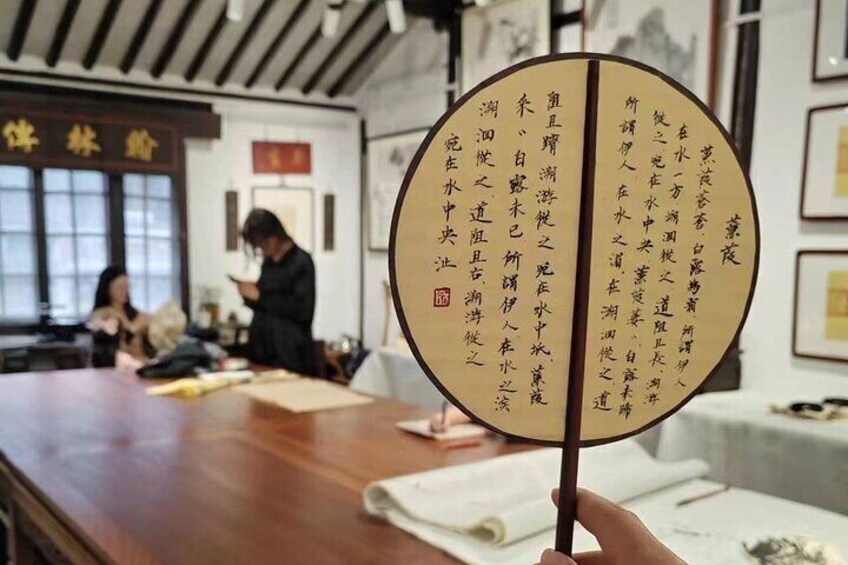 蒹葭
蒹葭蒼蒼、白露為霜、所謂伊人
在水一方 溯洄從之 道阻且長、溯游
從之 宛在水中央 蒹葭萋〻 白露未晞
所謂伊人 在水之湄、在溯洄從之 道
阻且躋 溯游從之 宛在水中坻、蒹葭
采〻 白露未已 所謂伊人、在水之涘
溯洄從之、道阻且右、溯游從之
宛在水中央 沚
翰林傳